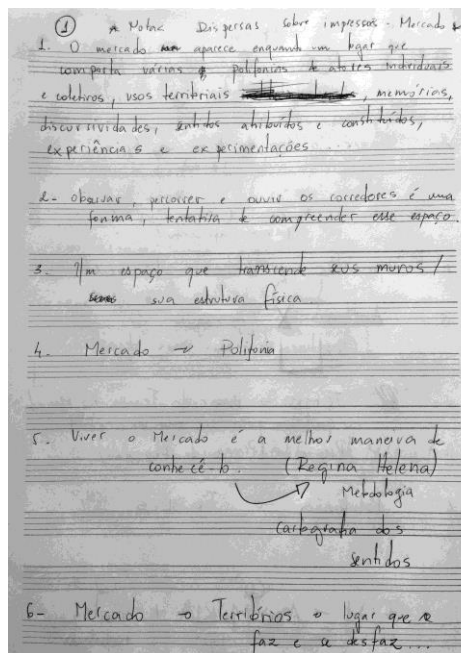 ① * Notas Dispersas sobre impressos - Mercado
1. O mercado aparece enquanto um lugar que
comporta várias polifonias de atores individuais
e coletivos, usos territoriais , memórias,
discursividades, sentidos atribuídos e constituídos,
experiências e experimentações ...
2- observar, percorrer e ouvir os corredores é uma
forma, tentativa de compreender esse espaço.
3. Um espaço que transcende seus muros /
sua estrutura física.
4. Mercado → Polifonia
5. Viver o Mercado é a melhor maneira de
conhecê-lo. (Regina Helena)
Metodologia
Cartografia dos
sentidos
6- Mercado → Territórios → lugar que se
faz e se desfaz...